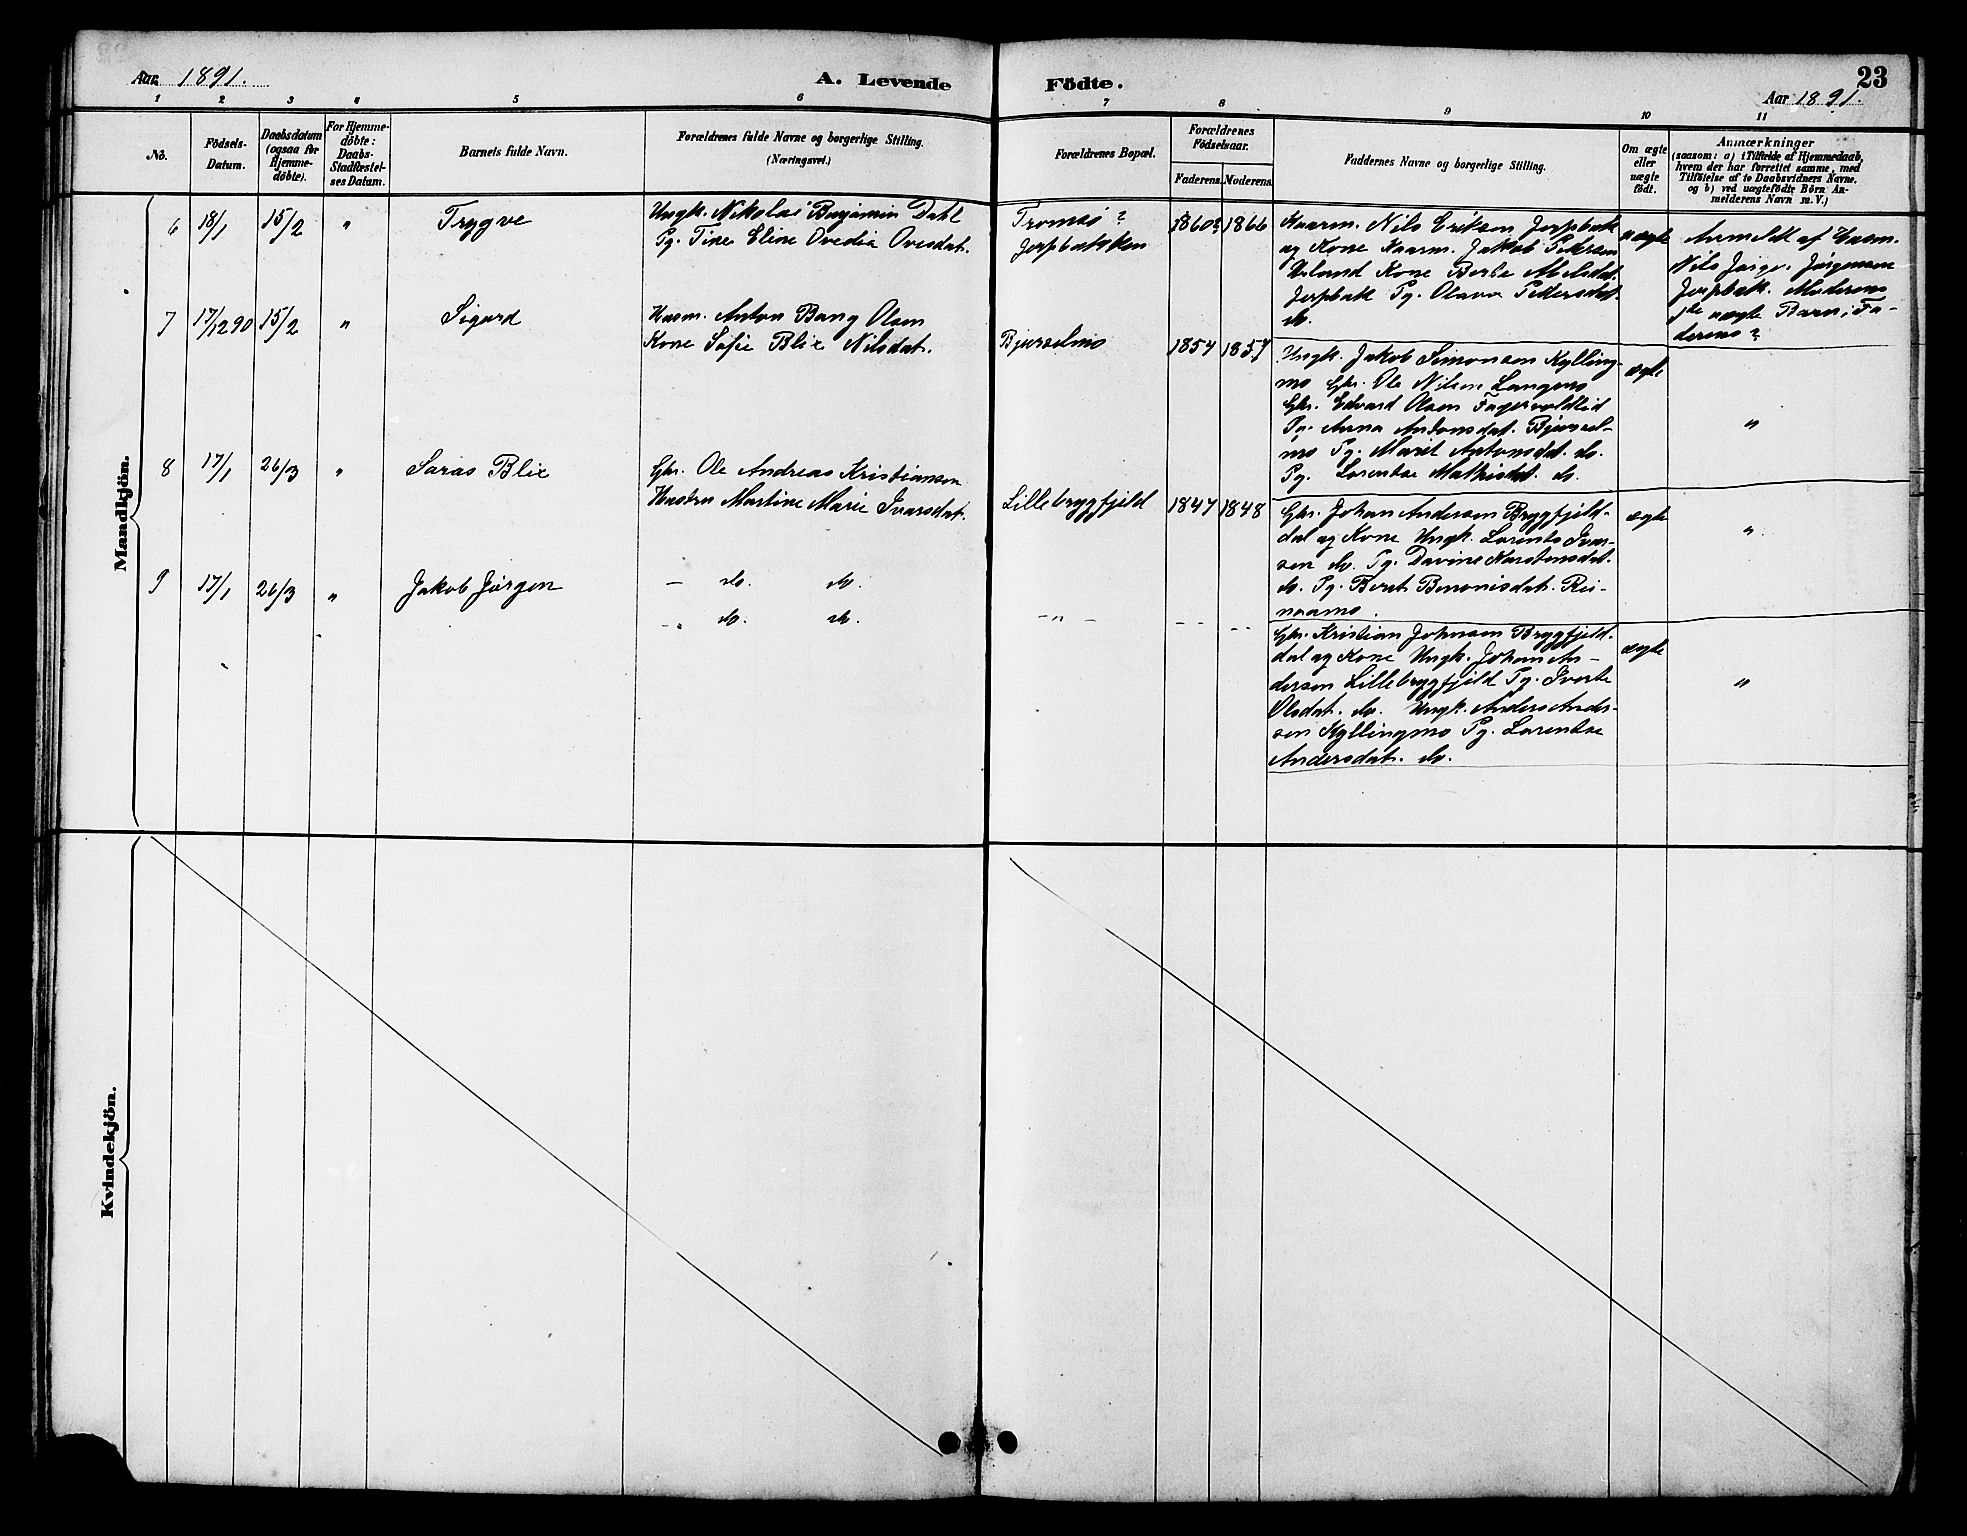 Aar. 1891.
A. Levende Födte.
23
Aar 1891.
1 2 3 4 5 6 7 8 9 10 11
No.
Födsels-
Datum.
Daabsdatum
(ogsaa for
Hjemme-
döbte).
For Hjemme-
döbte:
Daabs-
Stadfæstel-
ses Datum.
Barnets fulde Navn.
Forældrenes fulde Navne og borgerlige Stilling.
(Næringsvei.)
Forældrenes Bopæl.
Forældrenes
Födselsaar.
Faderens. Moderens.
Faddernes Navne og borgerlige Stilling.
Om ægte
eller
uægte
födt.
Anmærkninger
(saasom: a) i Tilfælde af Hjemmedaab,
hvem der har forrettet samme, med
Tilföielse af to Daabsvidners Navne.
og b) ved uægtefödte Börn An-
melderens Navn m. V.)
Mandkjön.
6 18/1 15/2 " Trygve
Ungk. Nikolai Benjamin Dahl
Pg. Tine Eline Ovedia Ovesdat.
Tromsö?
Jerpbakken
1860? 1866
Kaarm. Nils Eriksen Jerpbak
og Kone Kaarm. Jakob Pedersen
Kone Berte
Jerpbak Pg. Olava Pedersdat.
do.
uægte
Anmeldt af Husm.
Nils Jörgensen
Jerpbak. Moderens
1ste uægte Barn, Fa-
derens?
7 17/12 90 15/2 " Sigurd
Husm. Anton Bang Olsen
Kone Sofie Blix Nilsdat.
Bjurselmo
1854 1857
Ungk. Jakob Simonsen Kylling-
mo Gbr. Ole Nilsen Langmo
Gbr. Edvard Olsen Fagervoldlid
Pg. Anna Antonsdat. Bjursel-
mo Pg. Marit Antonsdat. do.
Pg. Lorentse Mathisdat. do.
ægte
"
8 17/1 26/3 " Saras Blix
Gbr. Ole Andreas Kristiansen
Hustru Martine Marie Ivarsdat.
Lillebrygfjeld
1847 1848
Gbr. Johan Andersen Brygfjeld-
dal og Kone Ungk. Lorents Ivar-
sen do. Pg. Davine Karstensdat.
do. Pg. Beret Benonisdat. Rei-
naamo.
ægte
"
9 17/1 26/3 " Jakob Jörgen
– do. do.
– " do. do.
– " –
– – – –
Gbr. Kristian Johnsen Brygfjeld-
dal og Kone Ungk. Johan An-
dersen Lillebrygfjeld Pg. Iverte
Olsdat. do. Ungk. Anders Ander-
sen Kyllingmo Pg. Lorentse
Andersdat. do.
ægte
"
Kvindekjön.